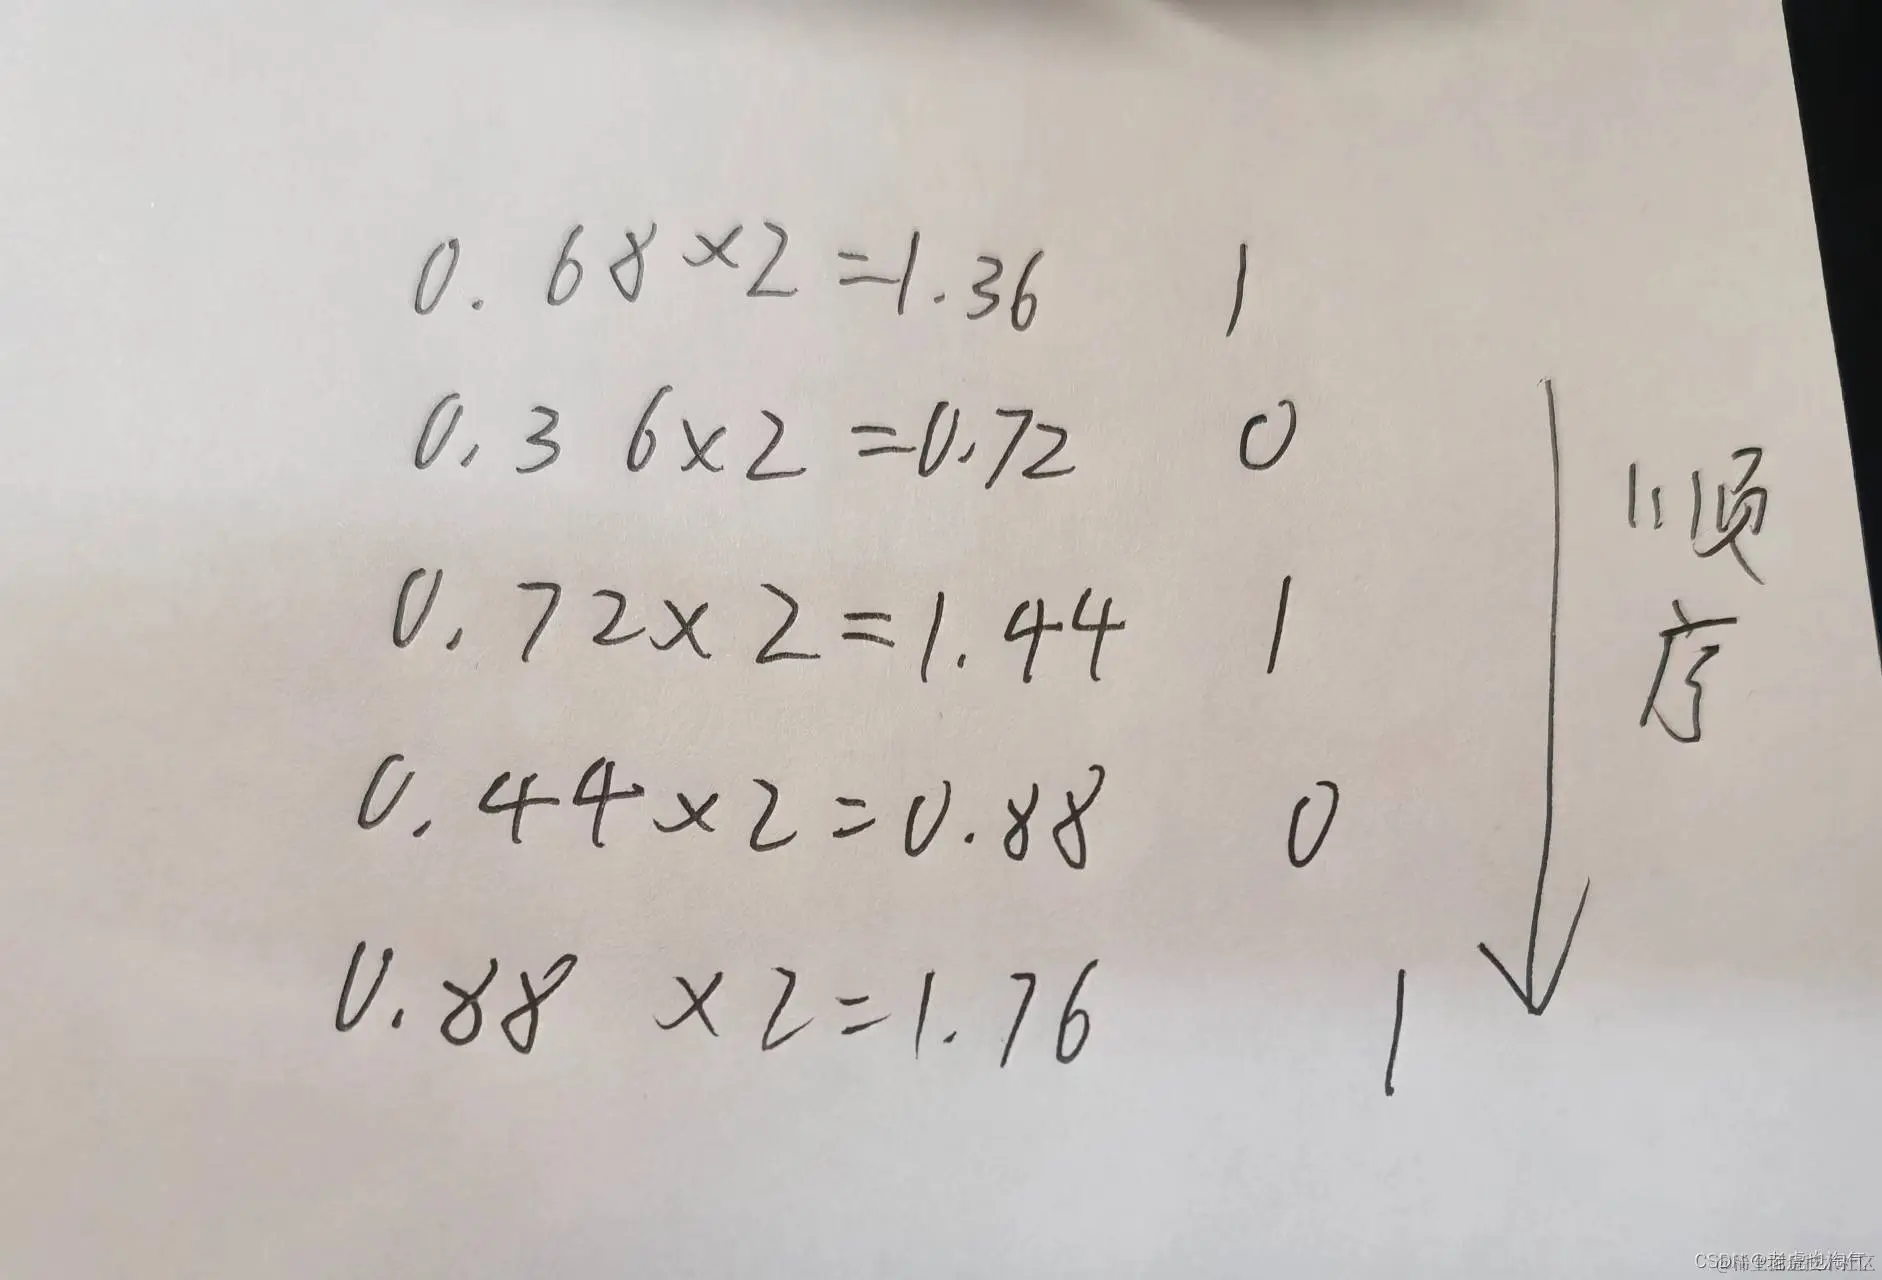 0.68×2=1.36 1
0.36×2=0.72 0
0.72×2=1.44 1
0.44×2=0.88 0
0.88×2=1.76 1
顺
序